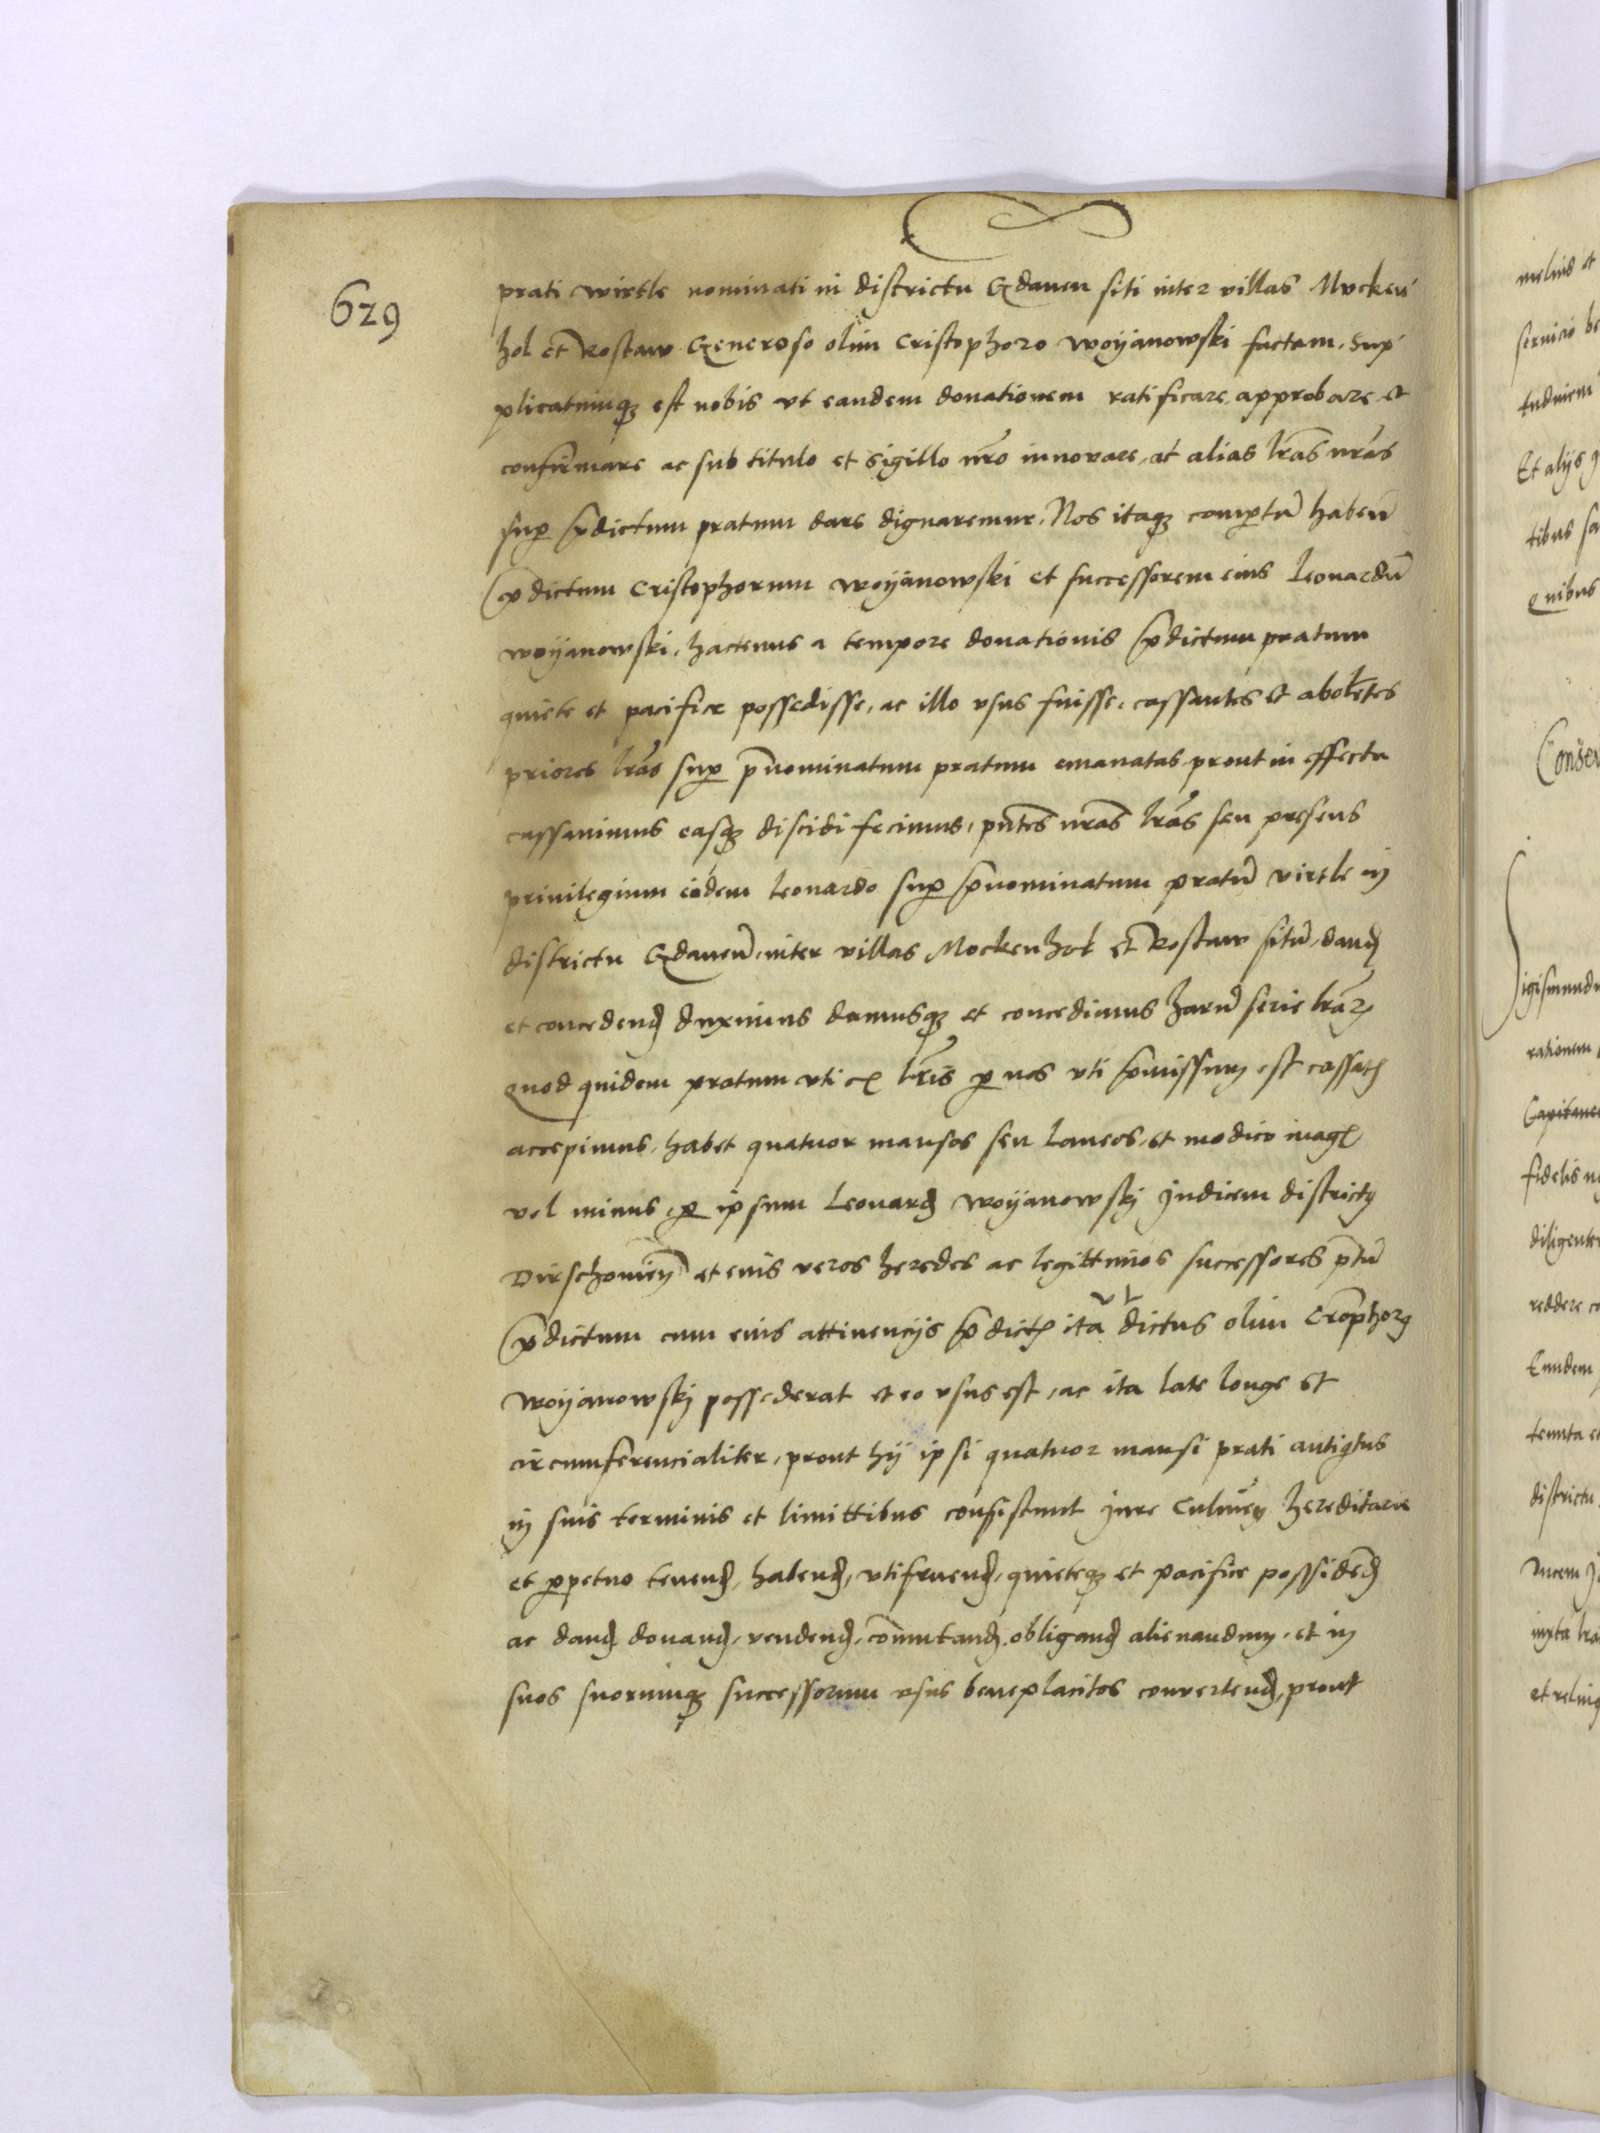 629
prati wirtle nominati in districtu Gdanen siti inter villas Mocken
hol et Rostaw Generoso olim Cristophoro Woyanowski factam, sup
plicatumq3 est nobis vt eandem donationem ratificare approbare et
confirmare ac sub titulo et sigillo nro innovare, at alias lras nras
sup pdictum pratum dare dignaremur. Nos itaq3 compertu haben
pdictum Cristophorum Woyanowski et successorem eius Leonardu
woyanowski, hactenus a tempore donationis pdictum pratum
quiete et pacifice possedisse, ac illo vsus fuisse, cassantes et abolentes
priores lras sup pnominatum pratum emanatas prout in effectu
cassauimus easq3 discidi fecimus, pntes nras lras seu presens
priuilegium eidem Leonardo sup pnominatum pratu virtle in
districtu Gdanen, inter villas Mockenhol et Rostaw situ, dand
et concedend duximus damusq3 et concedimus haru serie lrar
quod quidem pratum vti ex lris p nos vti pmissum est cassat
accepimus, habet quatuor mansos seu Laneos, et modico mag
vel minus, p ipsum Leonard Woyanowskj Judicem districtus
Dirschouien et eius veros heredes ac legittimos successores ptu
pdictum cum eius attinencijs pdict ita vt dictus olim Crophorus
Woyanowskj possederat et eo vsus est, ac ita late longe et
circumferencialiter, prout hij ipsi quatuor mansi prati antiqtus
in suis terminis et limittibus consistunt Jure Culmen hereditarie
et ppetuo tenend, habend, vtifruend, quieteq3 et pacifice possidend
ac dand donand, vendend, comutand, obligand alienandum, et in
suos suorumq3 successorum vsus beneplacitos conuertend, prout